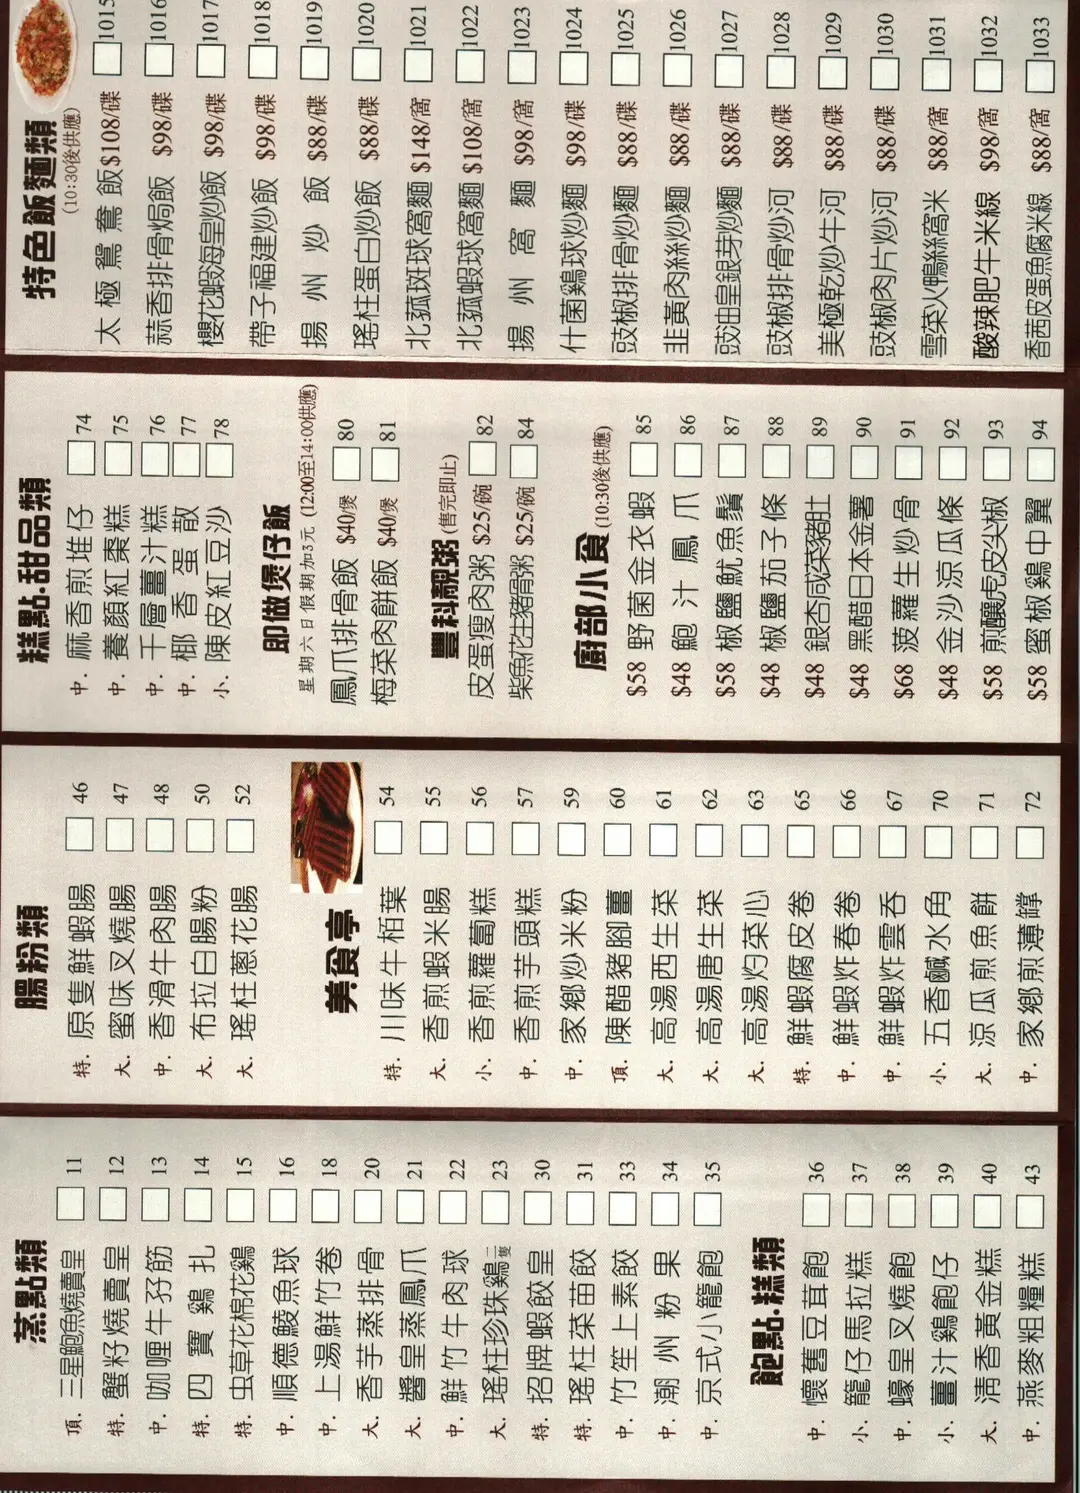 蒸點類
頂. 三星鮑魚燒賣皇 11
特. 蟹籽燒賣皇 12
中. 咖喱牛孖筋 13
特. 四寶鷄扎 14
特. 虫草花棉花鷄 15
中. 順德鯪魚球 16
中. 上湯鮮竹卷 18
大. 香芋蒸排骨 20
大. 醬皇蒸鳳爪 21
中. 鮮竹牛肉球 22
大. 瑤柱珍珠鷄二隻 23
特. 招牌蝦餃皇 30
特. 瑤柱菜苗餃 31
中. 竹笙上素餃 33
中. 潮州粉果 34
中. 京式小籠飽 35
飽點.糕類
中. 懷舊豆茸飽 36
小. 籠仔馬拉糕 37
中. 蠔皇叉燒飽 38
小. 薑汁鷄飽仔 39
大. 清香黃金糕 40
中. 燕麥粗糧糕 43
腸粉類
特. 原隻鮮蝦腸 46
大. 蜜味叉燒腸 47
中. 香滑牛肉腸 48
大. 布拉白腸粉 50
大. 瑤柱蔥花腸 52
美食亭
特. 川味牛栢葉 54
大. 香煎蝦米腸 55
小. 香煎蘿蔔糕 56
中. 香煎芋頭糕 57
中. 家鄉炒米粉 59
頂. 陳醋豬腳薑 60
大. 高湯西生菜 61
大. 高湯唐生菜 62
大. 高湯灼菜心 63
特. 鮮蝦腐皮卷 65
中. 鮮蝦炸春卷 66
中. 鮮蝦炸雲吞 67
小. 五香鹹水角 70
大. 涼瓜煎魚餅 71
中. 家鄉煎薄罉 72
糕點.甜品類
中. 麻香煎堆仔 74
中. 養顏紅棗糕 75
中. 千層薑汁糕 76
中. 椰香蛋散 77
小. 陳皮紅豆沙 78
即做煲仔飯
星期六日假期加3元 (12:00至14:00供應)
鳳爪排骨飯 $40/煲 80
梅菜肉餅飯 $40/煲 81
豐料靚粥 (售完即止)
皮蛋瘦肉粥 $25/碗 82
柴魚花生豬骨粥 $25/碗 84
廚部小食 (10:30後供應)
$58 野菌金衣蝦 85
$48 鮑汁鳳爪 86
$58 椒鹽魷魚鬚 87
$48 椒鹽茄子條 88
$48 銀杏咸菜豬肚 89
$48 黑醋日本金薯 90
$68 菠蘿生炒骨 91
$48 金沙涼瓜條 92
$58 煎釀虎皮尖椒 93
$58 蜜椒鷄中翼 94
特色飯麵類
(10:30後供應)
太極鴛鴦飯 $108/碟 1015
蒜香排骨焗飯 $98/碟 1016
櫻花蝦海皇炒飯 $98/碟 1017
帶子福建炒飯 $98/碟 1018
揚州炒飯 $88/碟 1019
瑤柱蛋白炒飯 $88/碟 1020
北菰斑球窩麵 $148/窩 1021
北菰蝦球窩麵 $108/窩 1022
揚州窩麵 $98/窩 1023
什菌鷄球炒麵 $98/碟 1024
豉椒排骨炒麵 $88/碟 1025
韭黃肉絲炒麵 $88/碟 1026
豉油皇銀芽炒麵 $88/碟 1027
豉椒排骨炒河 $88/碟 1028
美極乾炒牛河 $88/碟 1029
豉椒肉片炒河 $88/碟 1030
雪菜火鴨絲窩米 $88/窩 1031
酸辣肥牛米線 $98/窩 1032
香茜皮蛋魚腐米線 $88/窩 1033